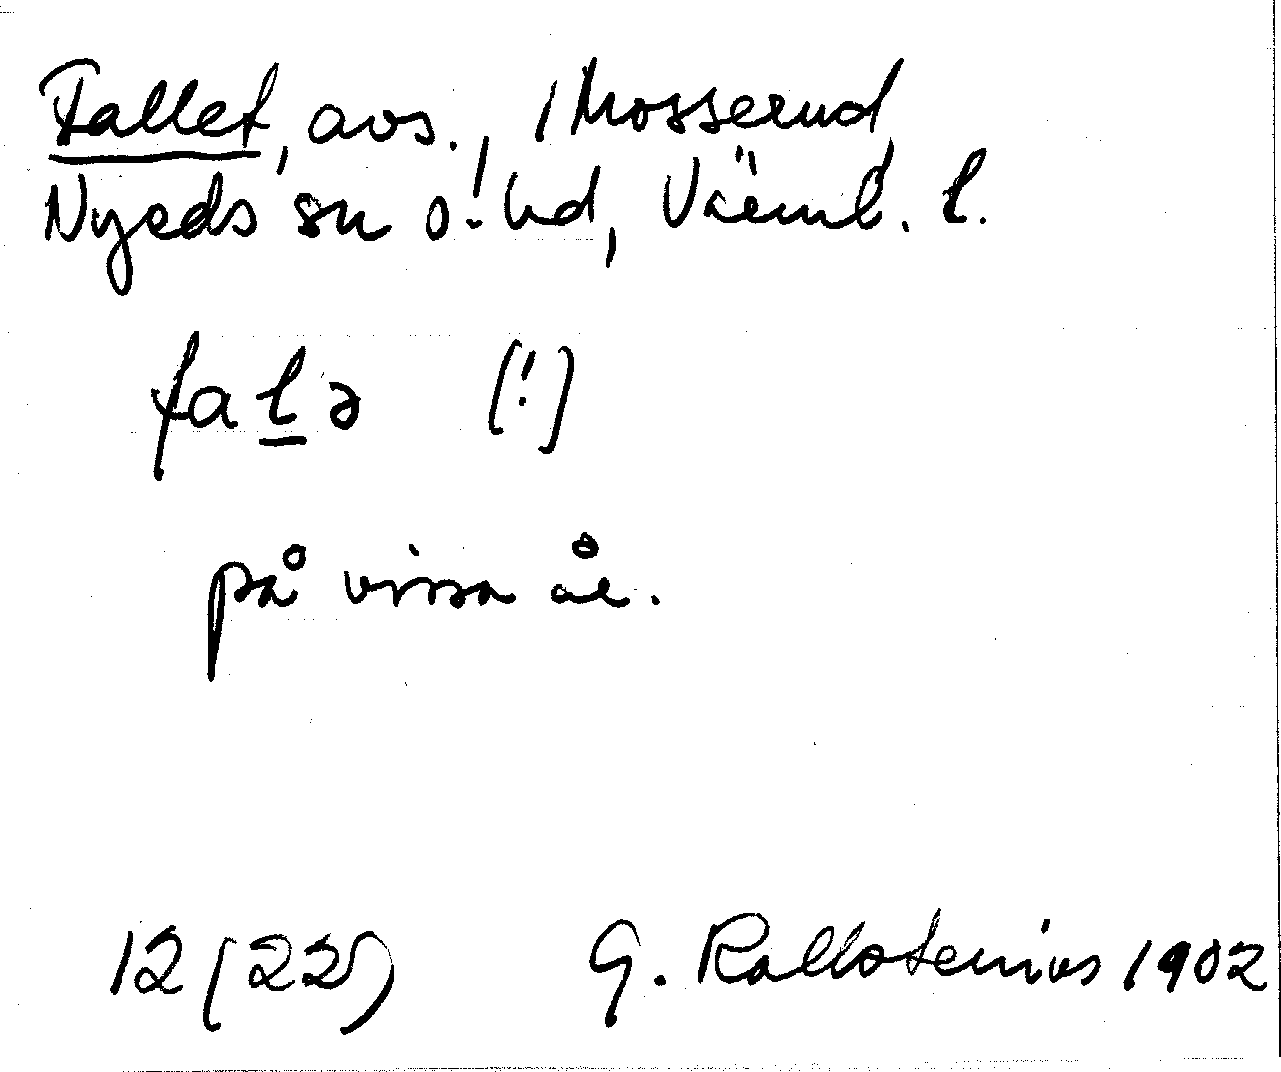 Fallet, avs., i Mosserud,
Nyeds sn o. hd, Värml. l.
falə (!)
på vissa år.
12 (22) G. Kallstenius 1902